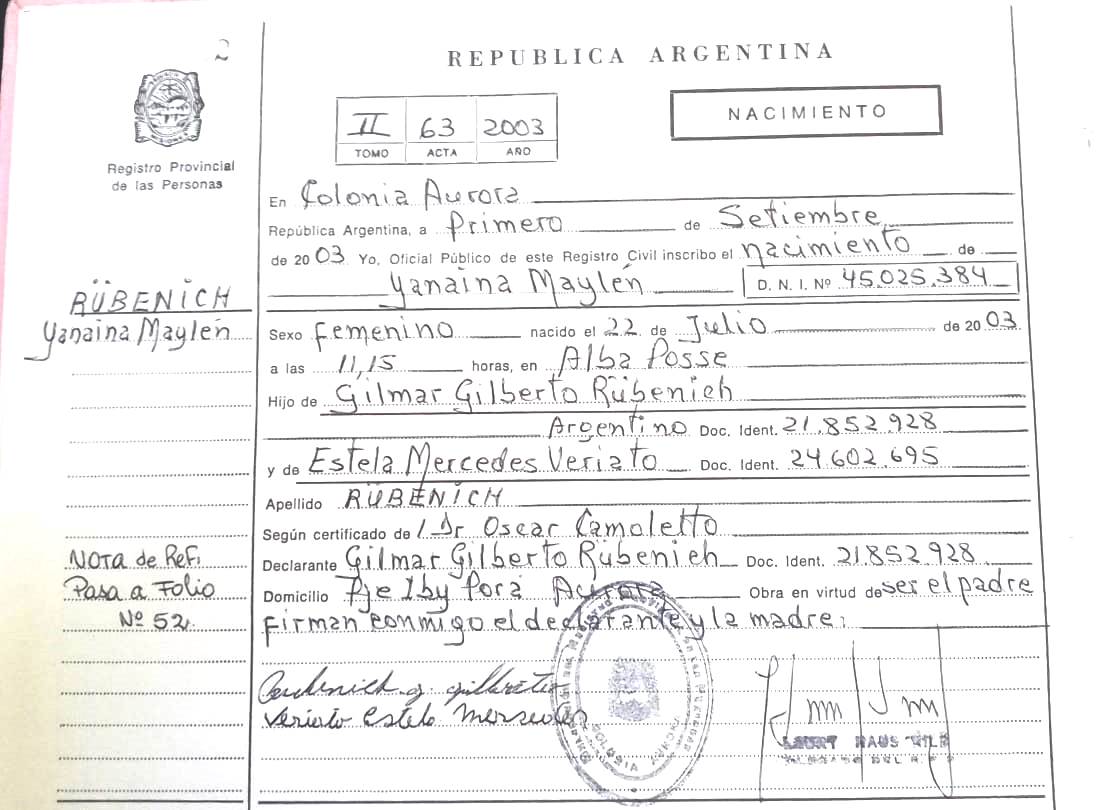 2
REPUBLICA ARGENTINA
Registro Provincial
de las Personas
II 63 2003
TOMO ACTA AÑO
NACIMIENTO
En Colonia Aurora
República Argentina, a Primero de Setiembre
de 2003 Yo, Oficial Público de este Registro Civil inscribo el nacimiento de
Yanaina Maylén D. N. I. Nº 45.025.384
RÜBENICH
Yanaina Maylén
Sexo Femenino nacido el 22 de Julio de 2003
a las 11,15 horas, en Alba Posse
Hijo de Gilmar Gilberto Rübenich
Argentino Doc. Ident. 21.852.928
y de Estela Mercedes Veriato Doc. Ident. 24.602.695
Apellido RÜBENICH
Según certificado de Dr Oscar Camoletto
Declarante Gilmar Gilberto Rübenich Doc. Ident. 21852.928
Domicilio Pje Iby Porá Aurora Obra en virtud de ser el padre
firman conmigo el declarante y la madre:
NOTA de Ref.
Pasa a Folio
Nº 52.
COLONIA AURORA